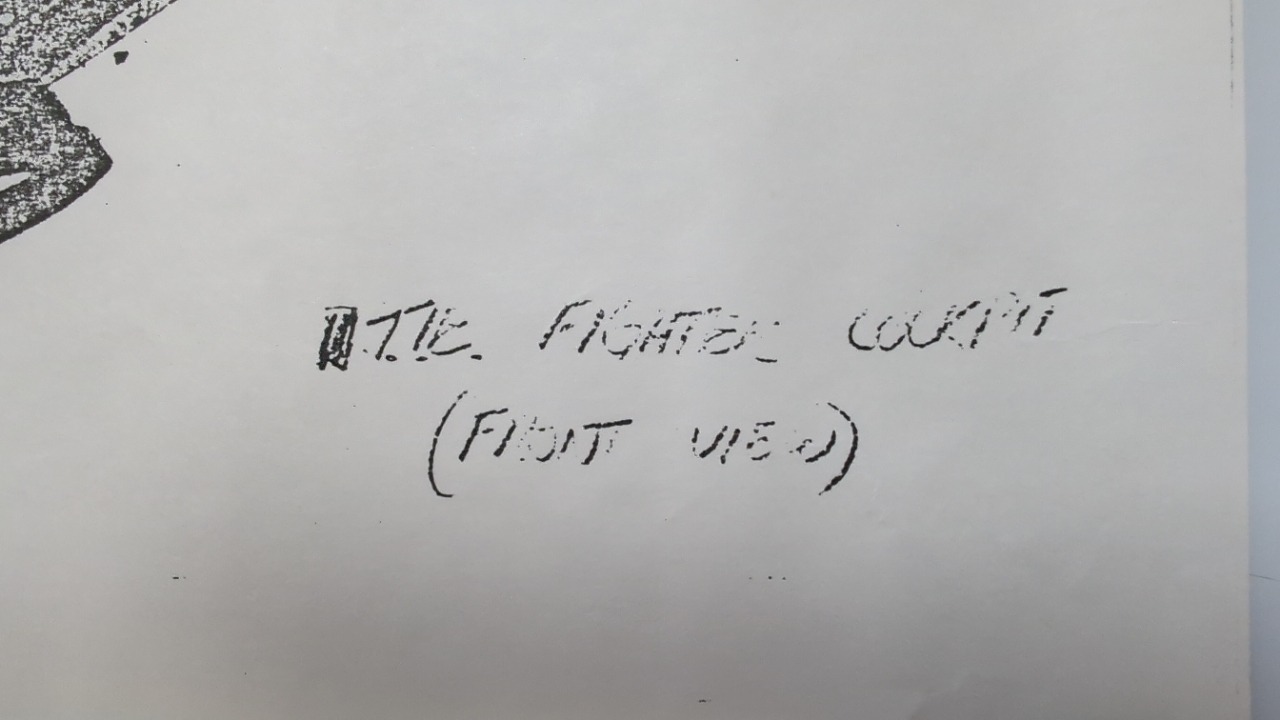 T.I.E. FIGHTER COCKPIT
(FRONT VIEW)